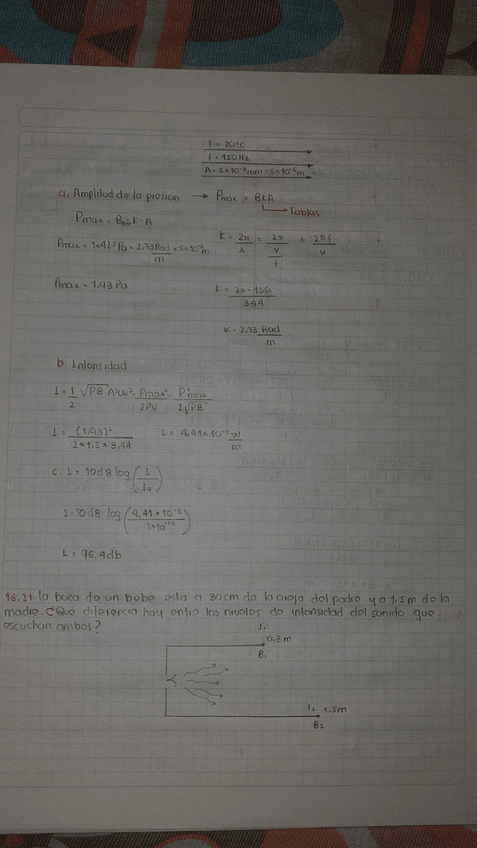 T = 20°C
f = 150Hz
A = 5x10⁻³mm = 5x10⁻⁶m
a. Amplitud de la presion → Pmax = BkA
Tablas
Pmax = B k · A
K = 2π/λ = 2π/(V/f) = 2πf/V
Pmax = 1x42⁵ Pa × 2.73 Rad/m × 5x10⁻⁶m
Pmax = 1.93 Pa
K = 2π · 150/344
K = 2.73 Rad/m
b. Intensidad
I = 1/2 √PB A²W² = Pmax²/2PV = P²max/2√PB
I = (1.93)²/2x1.2x3.44
I = 4,41x10⁻³ W/m
c. L = 10dB log (I/I₀)
L = 10dB · log (4,41x10⁻³/1x10⁻¹²)
L = 96,4db
16.21 la boca de un bebe esta a 30cm de la oreja del padre y a 1,5m de la
madre. ¿Que diferencia hay entre los niveles de intensidad del sonido que
escuchan ambos?
I₁
0,3 m
B₁
I₂ 1.5m
B₂